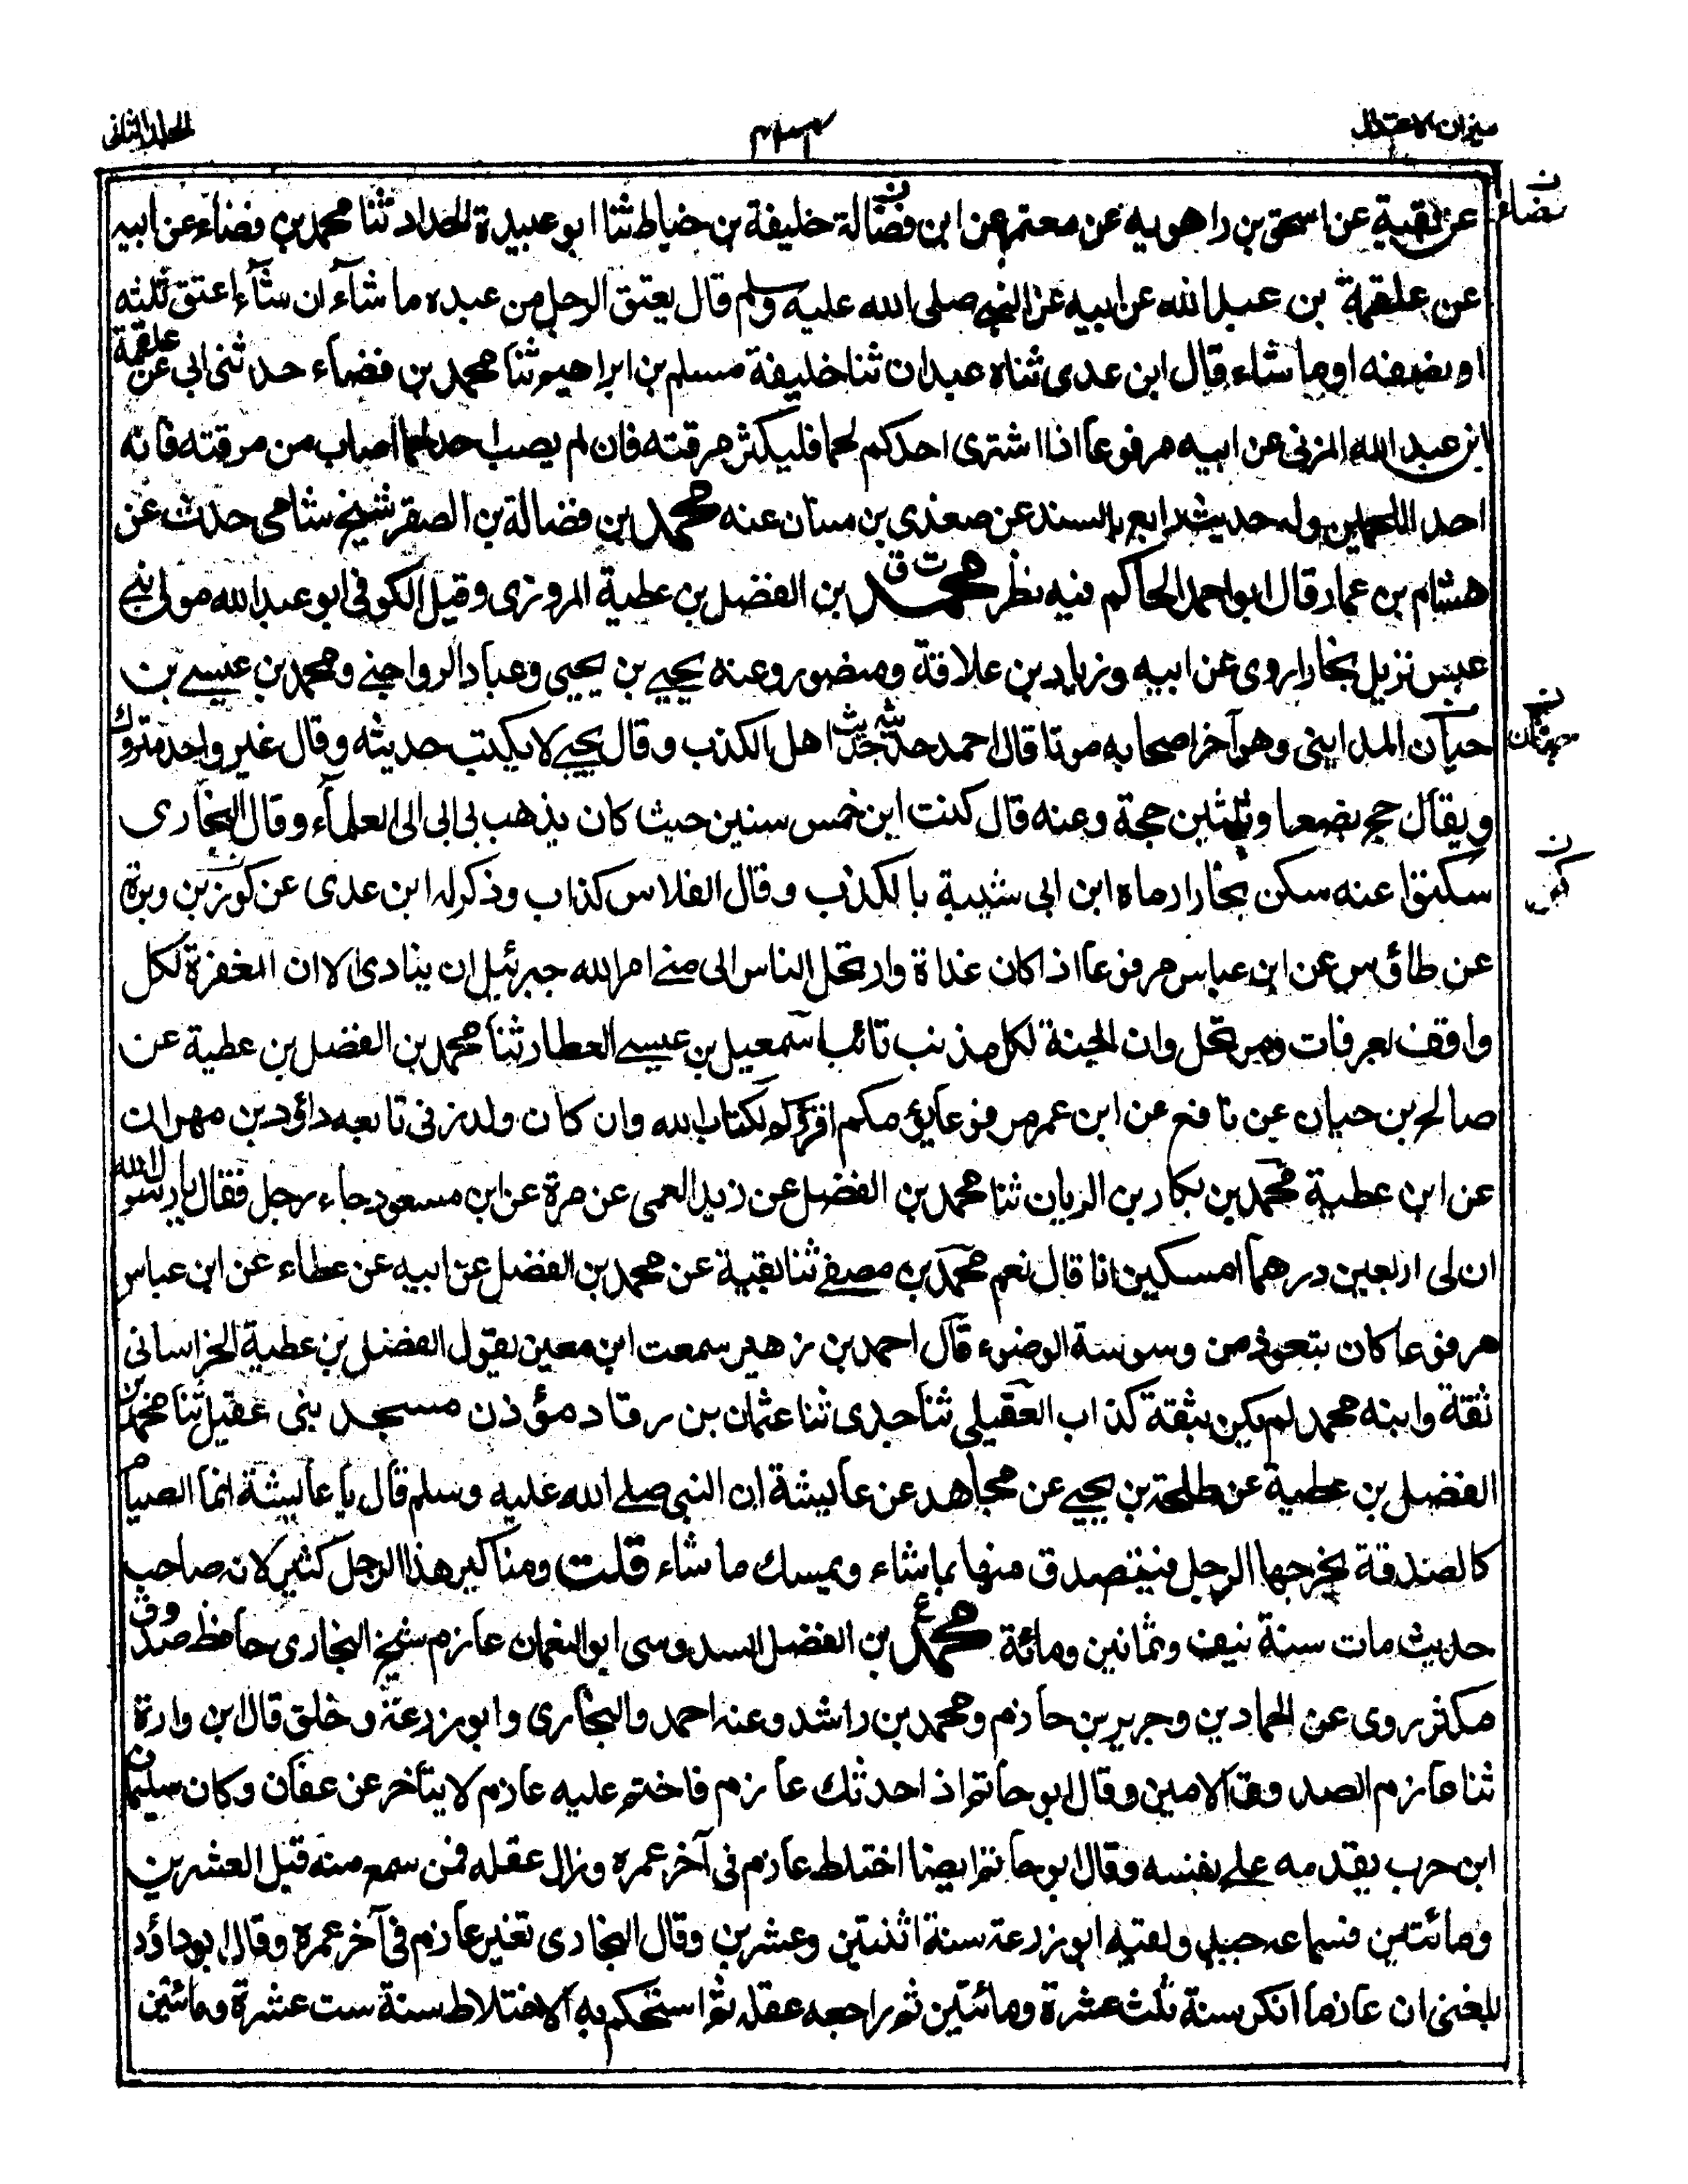 ميزان الاعتدال
المجلد الثاني
عن بقية عن اسحق بن راهويه عن معتمر عن ابن فضالة خليفة بن خياط ثنا ابو عبيدة الحداد ثنا محمد بن فضاء عن ابيه
فضاء
عن علقمة بن عبد الله عن ابيه عن النبي صلى الله عليه وسلم قال يعتق الرجل من عبده ما شآء ان شآء اعتق ثلثه
او نصفه او ما شاء قال ابن عدى ثناه عبدان ثنا خليفة مسلم بن ابراهيم ثنا محمد بن فضاء حدثنى ابى عن علقمة
ابن عبد الله المزنى عن ابيه مرفوعا اذا اشترى احدكم لحما فليكثر مرقته فان لم يصب احد لحما اصاب من مرقته فانه
احد اللحمين وله حديث رابع بالسند عن صغدى بن سنان عنه محمد بن فضالة بن الصقر شيخ شامى حدث عن
هشام بن عمار قال ابو احمد الحاكم فيه نظر محمد ت ق بن الفضل بن عطية المروزى وقيل الكوفى ابو عبد الله مولى بنى
عبس نزيل بخارا روى عن ابيه وزياد بن علاقة ومنصور وعنه يحيى بن يحيى وعباد الرواجنى ومحمد بن عيسى بن
حيان المداينى وهو آخر اصحابه موتا قال احمد حديثه حديث اهل الكذب وقال يحيى لا يكتب حديثه وقال غير واحد متروك
ويقال حج بضعا وثلثين حجة وعنه قال كنت ابن خمس سنين حيث كان يذهب بى ابى الى العلماء وقال البخارى
سكتوا عنه سكن بخارا رماه ابن ابى شيبة بالكذب وقال الفلاس كذاب وذكر له ابن عدى عن كوز بن وبرة
عن طاؤس عن ابن عباس مرفوعا اذا كان غداة وارتحل الناس الى منى امر الله جبرئيل ان ينادى الا ان المغفرة لكل
واقف بعرفات ومرتحل وان الجنة لكل مذنب تائب اسمعيل بن عيسى العطار ثنا محمد بن الفضل بن عطية عن
صالح بن حيان عن نافع عن ابن عمر مرفوعا يؤمكم اقرؤكم لكتاب الله وان كان ولد زنى تابعه داؤد بن مهران
عن ابن عطية محمد بن بكار بن الريان ثنا محمد بن الفضل عن زيد العمى عن مرة عن ابن مسعود جاء رجل فقال يا رسول الله
ان لى اربعين درهما امسكين انا قال نعم محمد بن مصفى ثنا بقية عن محمد بن الفضل عن ابيه عن عطاء عن ابن عباس
مرفوعا كان يتعوذ من وسوسة الوضوء قال احمد بن زهير سمعت ابن معين يقول الفضل بن عطية الخراسانى
ثقة وابنه محمد لم يكن بثقة كذاب العقيلى ثنا جدى ثنا عثمان بن رقاد مؤذن مسجد بنى عقيل ثنا محمد بن
الفضل بن عطية عن طلحة بن يحيى عن مجاهد عن عايشة ان النبى صلى الله عليه وسلم قال يا عايشة انما الصيام
كالصدقة يخرجها الرجل فيتصدق منها بما شاء ويمسك ما شاء قلت ومناكير هذا الرجل كثير لانه صاحب
حديث مات سنة نيف وثمانين ومائة محمد ع بن الفضل السدوسى ابو النعمان عارم شيخ البخارى حافظ صدوق
مكثر روى عن الحمادين وجرير بن حازم ومحمد بن راشد وعنه احمد والبخارى وابو زرعة وخلق قال ابن وارة
ثنا عارم الصدوق الامين وقال ابو حاتم اذا حدثك عارم فاختم عليه عارم لا يتأخر عن عفان وكان سليمان
ابن حرب يقدمه على نفسه وقال ابو حاتم ايضا اختلط عارم فى آخر عمره وزال عقله فمن سمع منه قبل العشرين
ومائتين فسماعه جيد ولقيه ابو زرعة سنة اثنتين وعشرين وقال البخارى تغير عارم فى آخر عمره وقال ابو داؤد
بلغنى ان عارما انكر سنة ثلث عشرة ومائتين ثم راجعه عقله ثم استحكم به الاختلاط سنة ست عشرة ومائتين